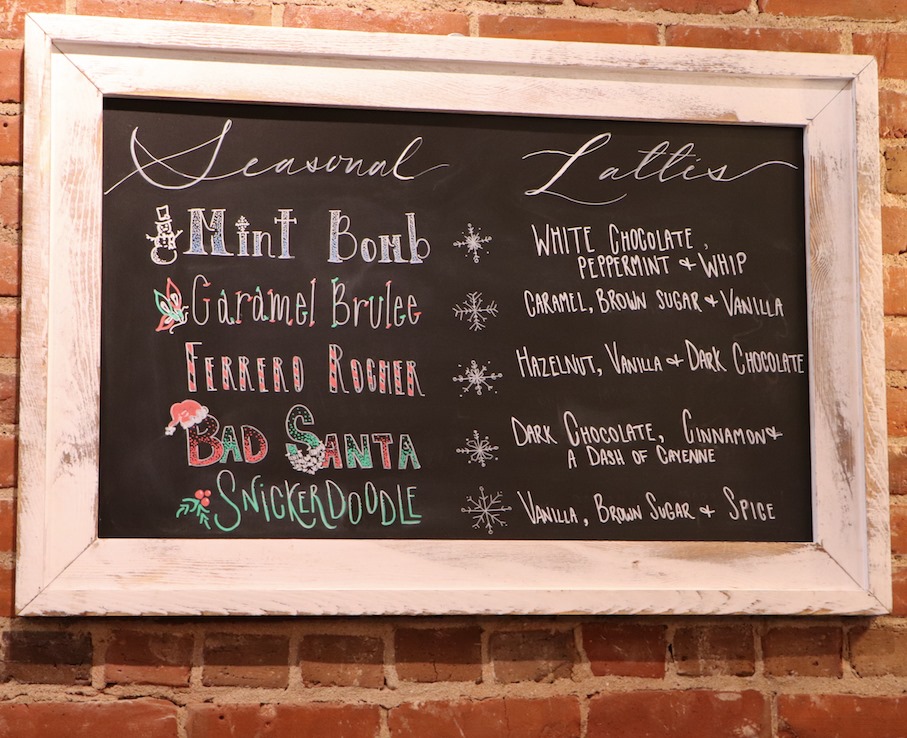 Seasonal Lattés
Mint Bomb
WHITE CHOCOLATE,
PEPPERMINT & WHIP
Caramel Brulee
CARAMEL, BROWN SUGAR & VANILLA
FERRERO ROCHER
HAZELNUT, VANILLA & DARK CHOCOLATE
BAD SANTA
DARK CHOCOLATE, CINNAMON &
A DASH OF CAYENNE
SNICKERDOODLE
VANILLA, BROWN SUGAR & SPICE